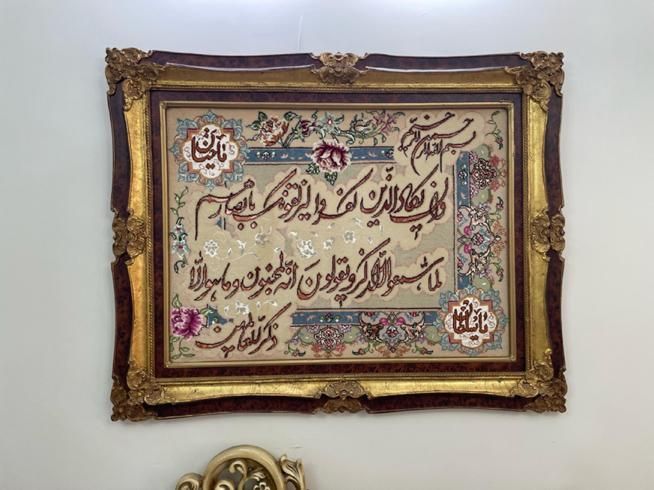 بسم الله الرحمن الرحیم
وان یکاد الذین کفروا لیزلقونک بابصارهم
لما سمعوا الذکر و یقولون انه لمجنون و ما هو الا
ذکر للعالمین
یا حنان